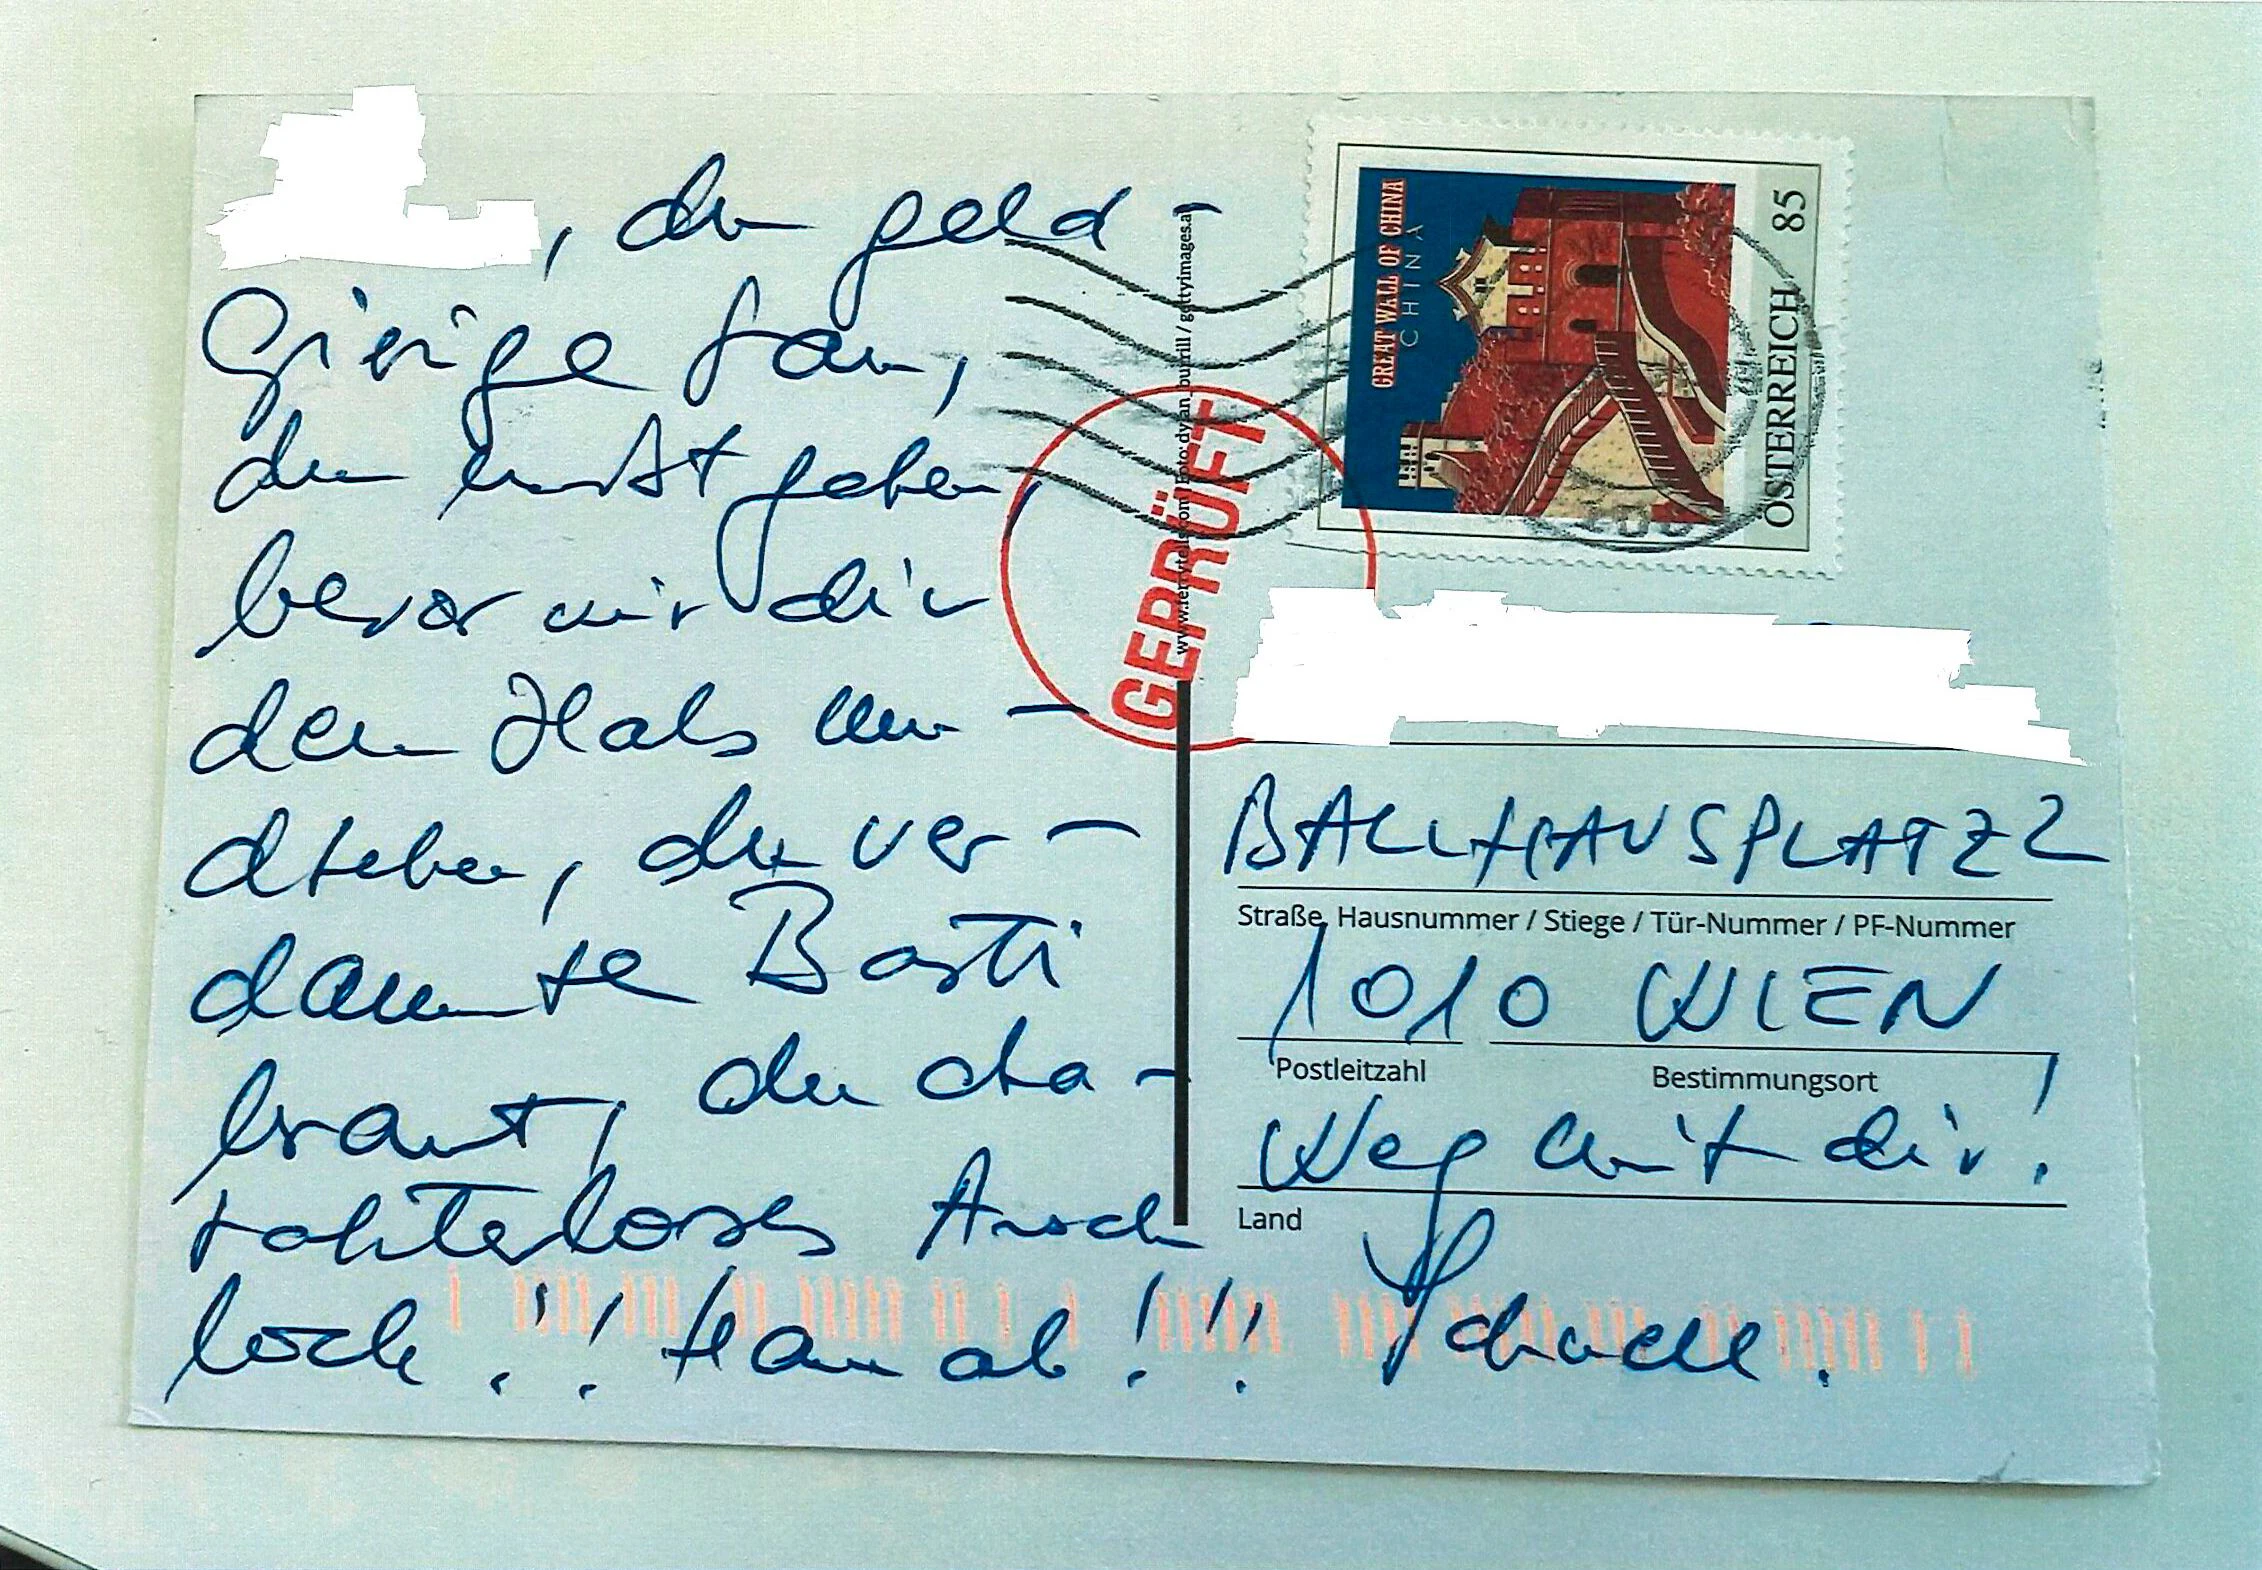 , du geld-
gierige Sau,
du musst gehen,
bevor wir dir
den Hals um-
drehen, du ver-
dammte Basti
braut, du cha-
rakterloses Arsch
loch!! Hau ab!! Schnell!
GREAT WALL OF CHINA
CHINA
ÖSTERREICH 85
GEPRÜFT
gettyimages.at
BALLHAUSPLATZ 2
Straße, Hausnummer / Stiege / Tür-Nummer / PF-Nummer
1010 WIEN
Postleitzahl Bestimmungsort
Weg mit dir!
Land